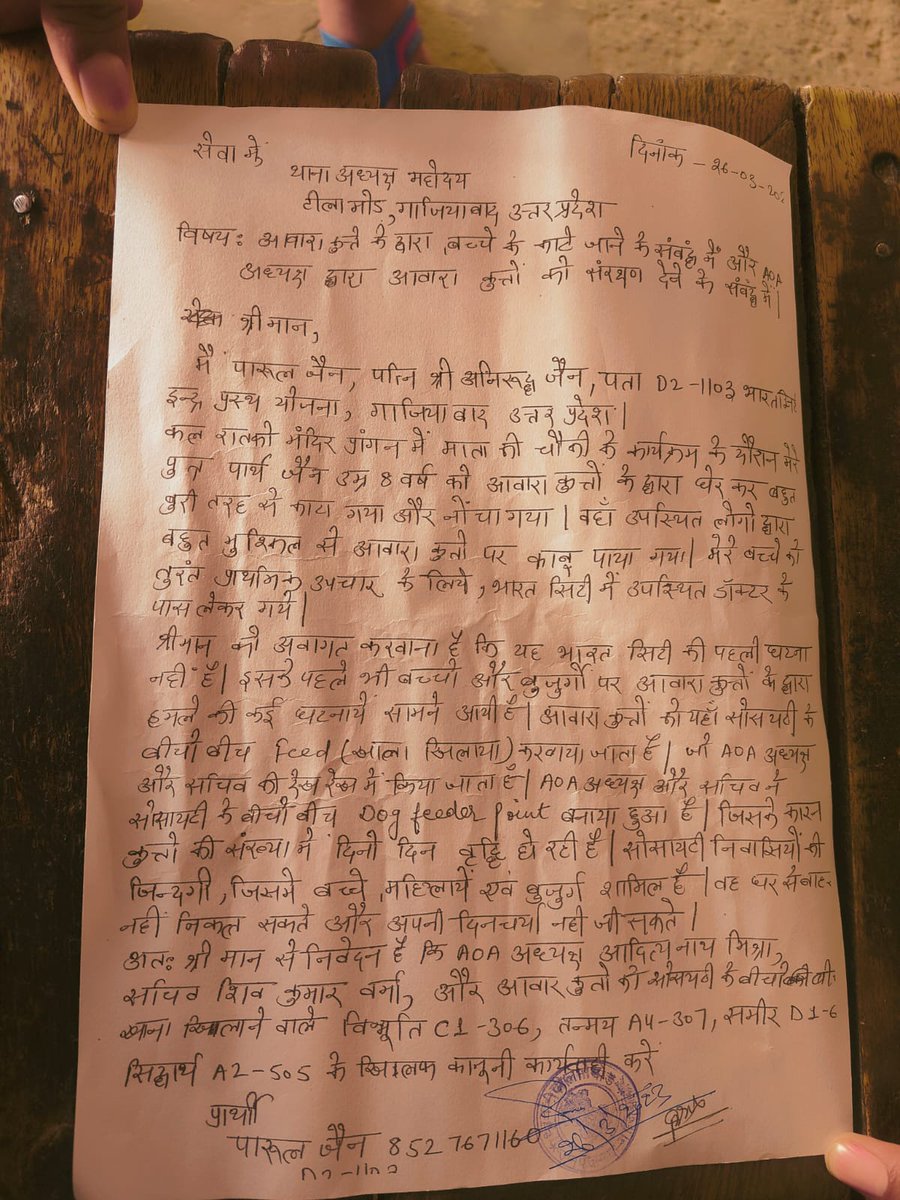 सेवा में
दिनांक - 26-03-202
थाना अध्यक्ष महोदय
टीला मोड, गाजियाबाद उत्तर प्रदेश
विषय: आवारा कुत्ते के द्वारा बच्चे के काटे जाने के संबंद्ध में और AOA
अध्यक्ष द्वारा आवारा कुत्तों को संरक्षण देने के संबंद्ध में|
श्री मान,
मैं पारूल जैन, पत्नि श्री अनिरूद्ध जैन, पता D2-1103 भारत सिटी
इन्द्र प्रस्थ योजना, गाजियाबाद उत्तर प्रदेश|
कल रात को मंदिर प्रांगन में माता की चौकी के कार्यक्रम के दौरान मेरे
पुत्र पार्थ जैन उम्र 8 वर्ष को आवारा कुत्तों के द्वारा घेर कर बहुत
बुरी तरह से काटा गया और नोंचा गया| वहाँ उपस्थित लोगो द्वारा
बहुत मुश्किल से आवारा कुत्तो पर काबू पाया गया| मेरे बच्चे को
तुरंत प्राथमिक उपचार के लिये, भारत सिटी में उपस्थित डॉक्टर के
पास लेकर गये|
श्रीमान को अवागत करवाना है कि यह भारत सिटी की पहली घटना
नहीं है| इसके पहले भी बच्चो और बुजुर्गो पर आवारा कुत्तों के द्वारा
हमले की कई घटनायें सामने आयी है| आवारा कुत्तों को यहाँ सोसायटी के
बीचो बीच feed (खाना खिलाया) करवाया जाता है| जो AOA अध्यक्ष
और सचिव की देख रेख में किया जाता है| AOA अध्यक्ष और सचिव ने
सोसायटी के बीचों बीच Dog feeder Point बनाया हुआ है| जिसके कारन
कुत्तो की संख्या में दिनो दिन वृद्धि हो रही है| सोसायटी निवासियों की
जिन्दगी, जिसमे बच्चे, महिलायें एवं बुजुर्ग शामिल है| वह घर से बाहर
नहीं निकल सकते और अपनी दिनचर्या नही जी सकते|
अतः श्री मान से निवेदन है कि AOA अध्यक्ष आदित्यनाथ मिश्रा,
सचिव शिव कुमार वर्मा, और आवार कुत्तो को सोसायटी के बीचो
खाना खिलाने वाले विभूति C1-306, तन्मय A4-307, समीर D1-6
सिद्धार्थ A2-505 के खिलाफ कानूनी कार्यवाही करें
प्रार्थी
पारूल जैन 8527671160
D2-1103
26/3/2023